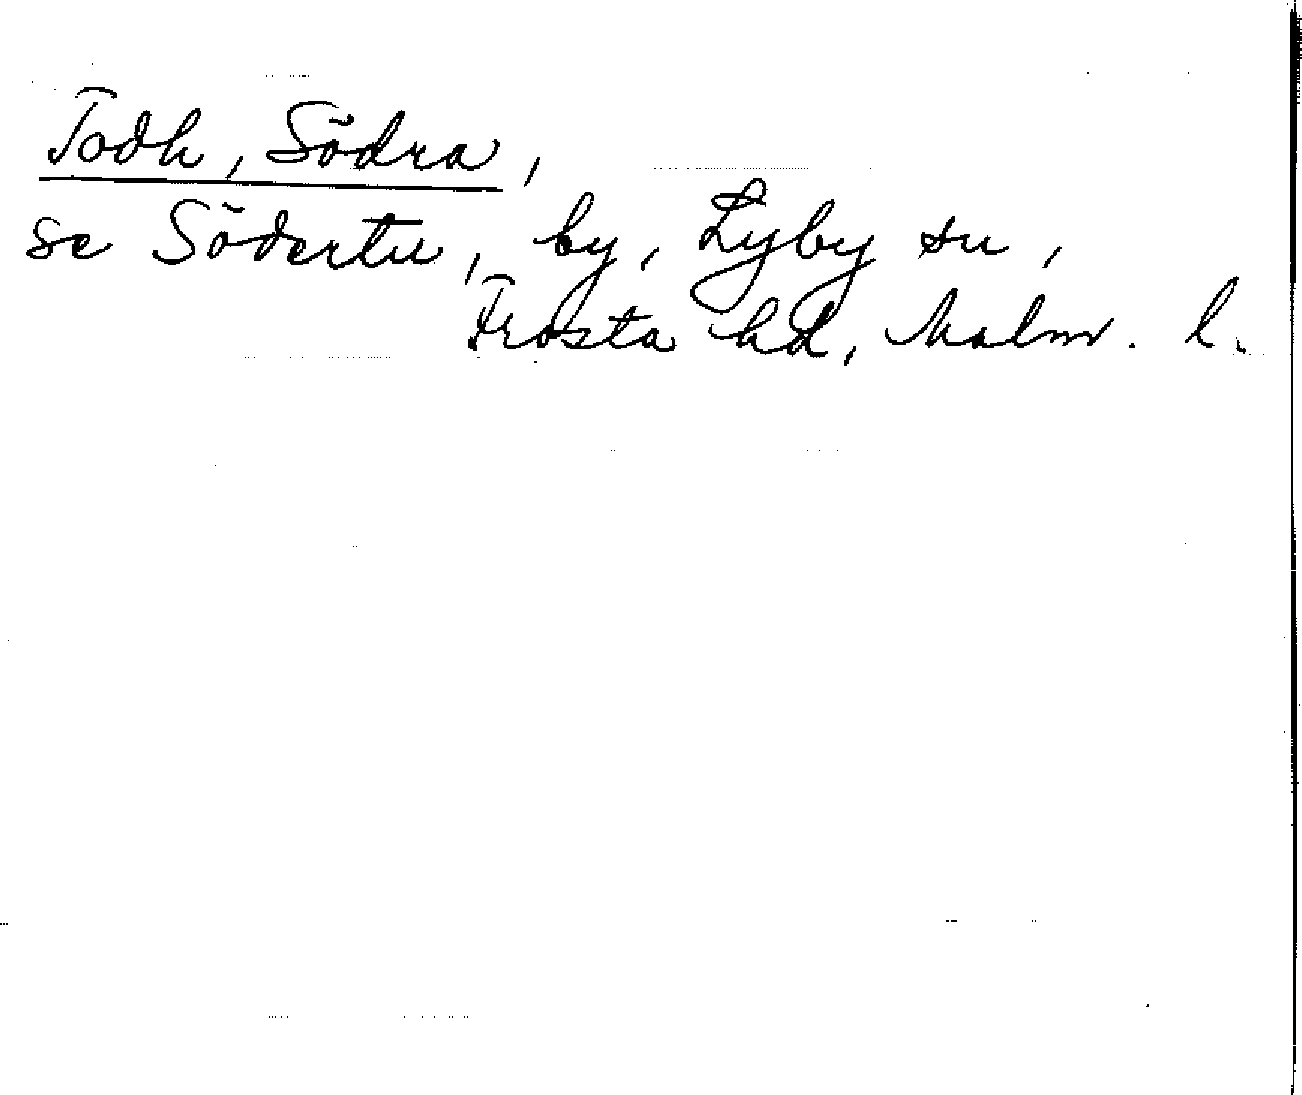 Todh, Södra,
se Södertu, by, Lyby sn,
Frosta hd, Malm. l.